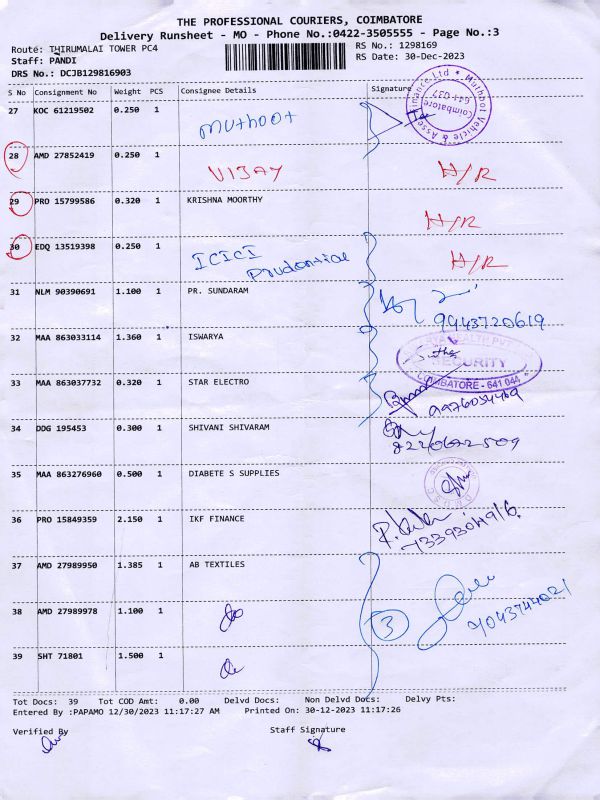 THE PROFESSIONAL COURIERS, COIMBATORE
Delivery Runsheet - MO - Phone No.:0422-3505555 - Page No.:3
Route: THIRUMALAI TOWER PC4
RS No.: 1298169
Staff: PANDI
RS Date: 30-Dec-2023
DRS No.: DCJB129816903
S No Consignment No Weight PCS Consignee Details Signature
27 KOC 61219502 0.250 1 Muthoot
Muthoot Vehicle & Asset Finance Ltd * Coimbatore 641 037
28 AMD 27852419 0.250 1 VIJAY H/R
29 PRO 15799586 0.320 1 KRISHNA MOORTHY H/R
30 EDQ 13519398 0.250 1 ICICI Prudential H/R
31 NLM 90390691 1.100 1 PR. SUNDARAM
9443720619
32 MAA 863033114 1.360 1 ISWARYA
SECURITY
COIMBATORE - 641 044
33 MAA 863037732 0.320 1 STAR ELECTRO
34 DDG 195453 0.300 1 SHIVANI SHIVARAM
35 MAA 863276960 0.500 1 DIABETE S SUPPLIES
36 PRO 15849359 2.150 1 IKF FINANCE
37 AMD 27989950 1.385 1 AB TEXTILES
38 AMD 27989978 1.100 1 do 3
39 SHT 71801 1.500 1
Tot Docs: 39 Tot COD Amt: 0.00 Delvd Docs: Non Delvd Docs: Delvy Pts:
Entered By :PAPAMO 12/30/2023 11:17:27 AM Printed On: 30-12-2023 11:17:26
Verified By
Staff Signature